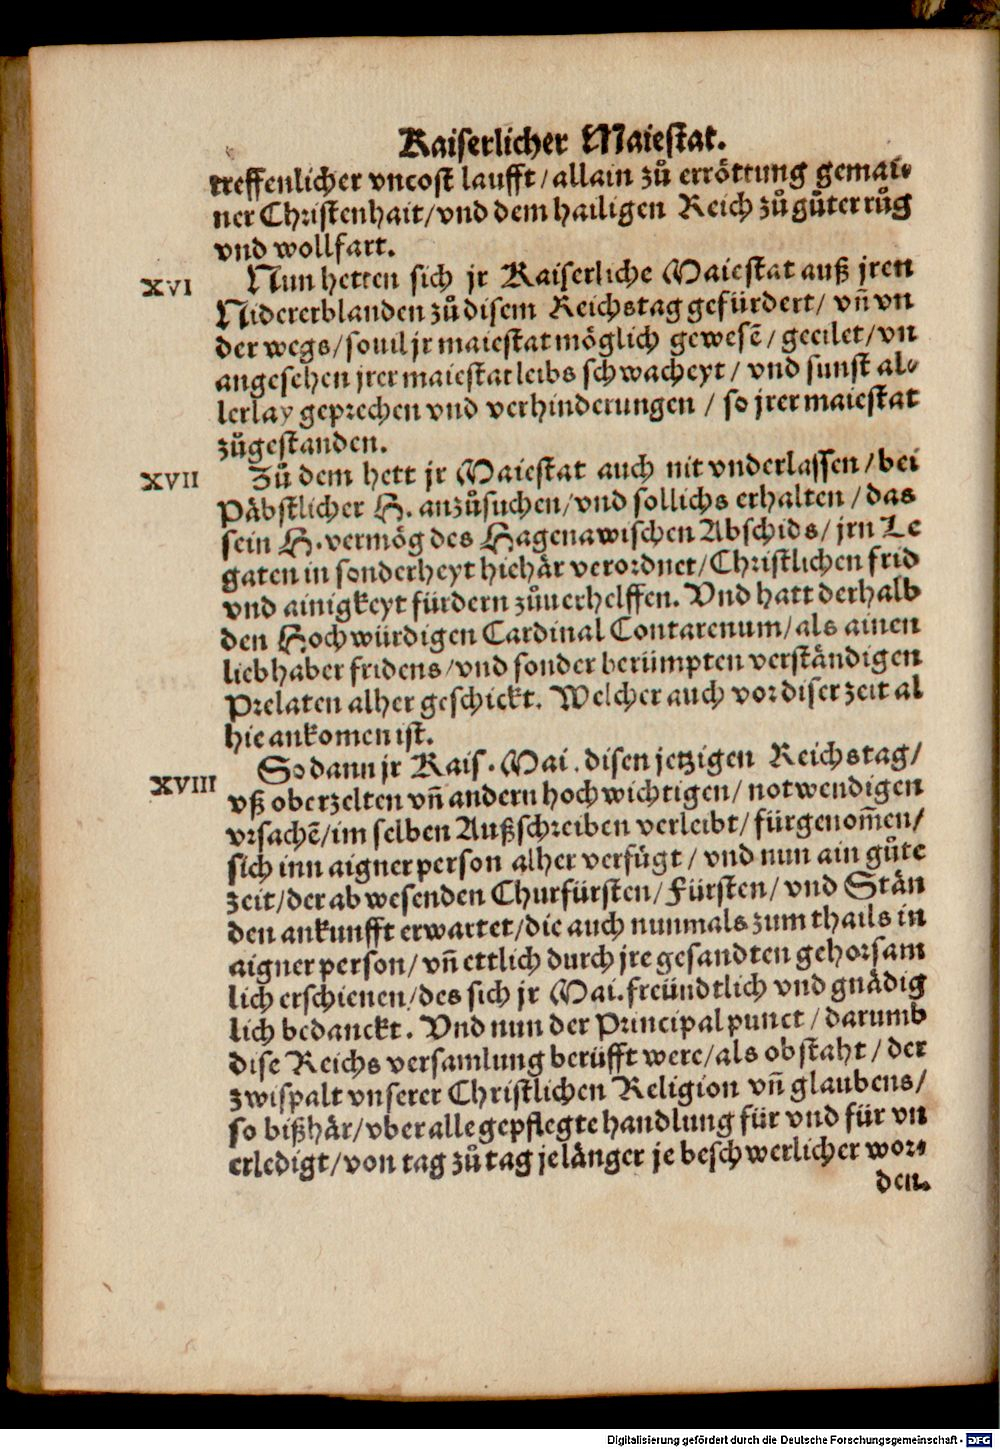 Kaiserlicher Maiestat.
treffenlicher vncost laufft/allain zů erröttung gemai⸗
ner Christenhait/vnd dem hailigen Reich zů gůter růg
vnd wollfart.
XVI Nun hetten sich jr Kaiserliche Maiestat auß jren
Nidererblanden zů disem Reichstag gefürdert/ vñ vn
der wegs/souil jr maiestat möglich gewesẽ/geeilet/vn
angesehen jrer maiestat leibs schwacheyt/ vnd sunst al⸗
lerlay geprechen vnd verhinderungen / so jrer maiestat
zůgestanden.
XVII Zů dem hett jr Maiestat auch nit vnderlassen/bei
Päbstlicher H. anzůsuchen/vnd sollichs erhalten/das
sein H. vermög des Hagenawischen Abschids/jrn Le
gaten in sonderheyt hiehär verordnet/Christlichen frid
vnd ainigkeyt fürdern zůuerhelffen. Vnd hatt derhalb
den Hochwürdigen Cardinal Contarenum/als ainen
liebhaber fridens/vnd sonder berümpten verständigen
Prelaten alher geschickt. Welcher auch vor diser zeit al
hie ankomen ist.
XVIII So dann jr Kais. Mai. disen jetzigen Reichstag/
vß oberzelten vñ andern hochwichtigen/notwendigen
vrsachẽ/im selben Außschreiben verleibt/fürgenom̃en/
sich inn aigner person alher verfügt/ vnd nun ain gůte
zeit/der abwesenden Churfürsten/Fürsten/vnd Stän
den ankunfft erwartet/die auch nunmals zum thails in
aigner person/vñ ettlich durch jre gesandten gehorsam
lich erschienen/des sich jr Mai. freündtlich vnd gnädig
lich bedanckt. Vnd nun der Principal punct/darumb
dise Reichs versamlung berüfft were/als obstaht/der
zwispalt vnserer Christlichen Religion vñ glaubens/
so bißhär/vber alle gepflegte handlung für vnd für vn
erledigt/von tag zů tag je länger je beschwerlicher wor⸗
den.
Digitalisierung gefördert durch die Deutsche Forschungsgemeinschaft - DFG